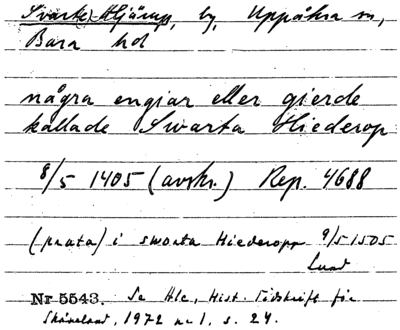 Svarte)-Hjärup, by, Uppåkra sn,
Bara hd
några engiar eller gierde
kallade Swarta Hiederop
8/5 1405 (avskr.) Rep. 4688
(prata) i sworta Hiederopp 9/5 1505
Lund
Nr 5543. Se Hle, Hist. Tidskrift för
Skåneland, 1972 nr 1, s. 24.